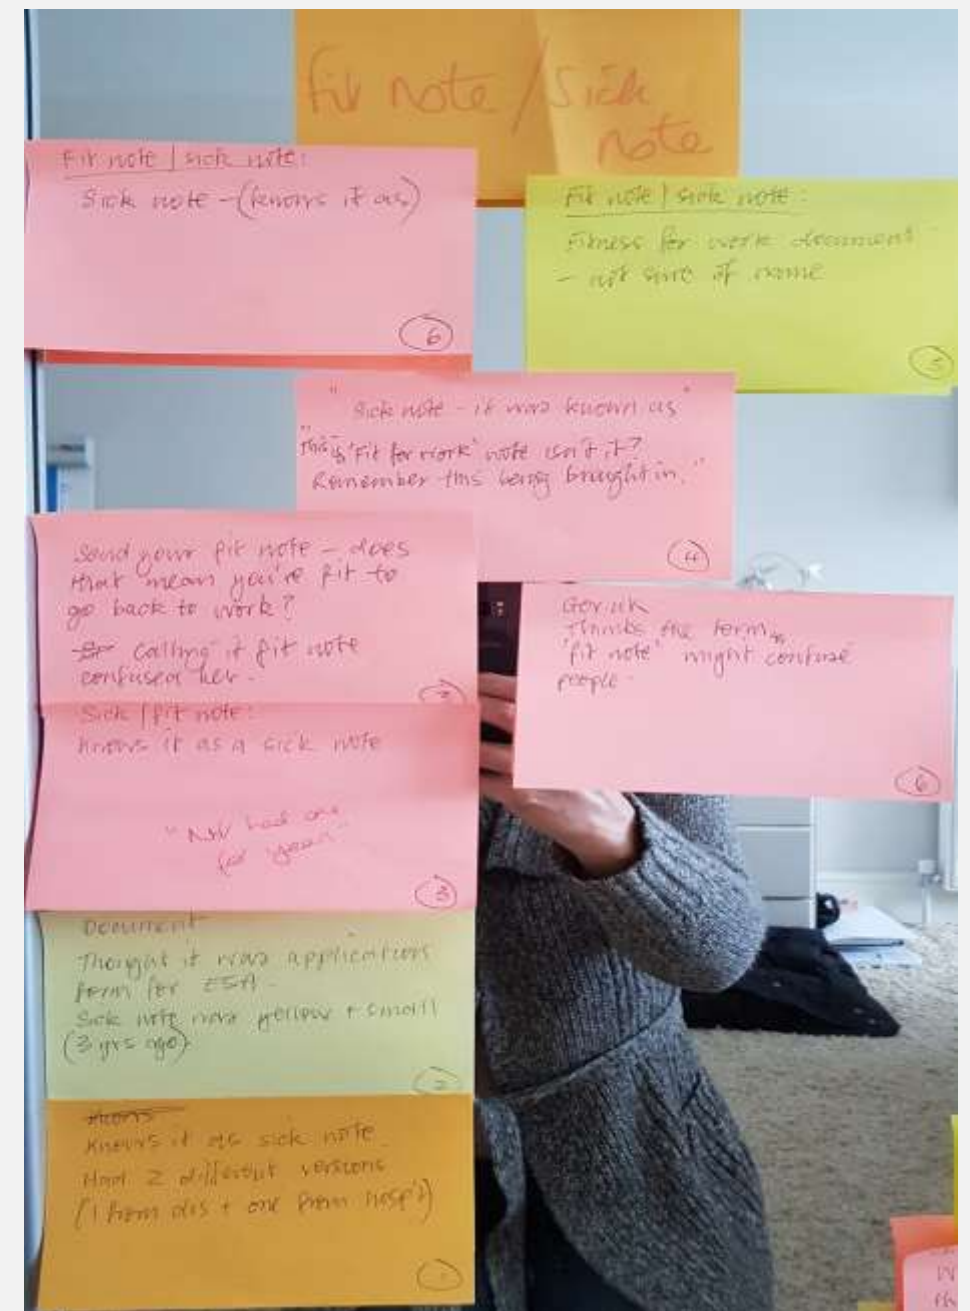 fit note / Sick
note
Fit note / sick note:
Sick note - (knows it as)
6
Fit note / sick note:
Fitness for work document
- not sure of name
5
"Sick note - it was known as"
"This is 'Fit for work' note isn't it?
Remember this being brought in."
4
Send your fit note - does
that mean you're fit to
go back to work?
calling it fit note
confused her.
Gov.uk
Thinks the term
'fit note' might confuse
people.
6
Sick / fit note:
Knows it as a sick note
"Not had one
for years"
3
Document
Thought it was application
form for ESA.
Sick note was yellow + small
(3 yrs ago)
2
Knows it as sick note.
Had 2 different versions
(1 from drs + one from hosp't)
1